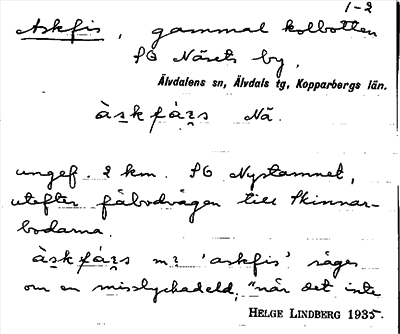 1-2
Askfis, gammal kolbotten
SO Näsets by,
Älvdalens sn, Älvdals tg, Kopparbergs län.
àskfàɿs Nä.
ungef. 2 km. SO Nystamnet,
utefter fäbodvägen till Skinnar-
bodarna.
àskfàɿs m? 'askfis' säges
om en misslyckad eld, "när det inte
HELGE LINDBERG 1935.